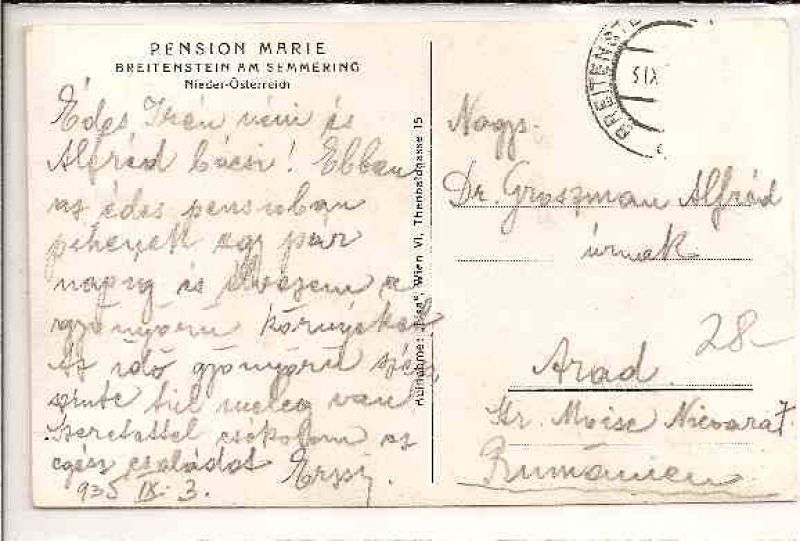 PENSION MARIE
BREITENSTEIN AM SEMMERING
Nieder-Österreich
Édes Irén néni és
Alfréd bácsi! Ebban
az édes pensioban
pihenek egy pár
napig és élvezem a
gyönyörű környéket
Az idő gyönyörű szép
szinte túl meleg van
Szeretettel csókolom az
egész családot Erzsi.
935 IX. 3.
Aufnahme: Wien VI, Thenbaldgasse 15
BREITENSTE
5 IX
Nags.
Dr. Groszman Alfréd
úrnak
28-
Arad.
Str. Moise Nicoara 7.
Rumänien